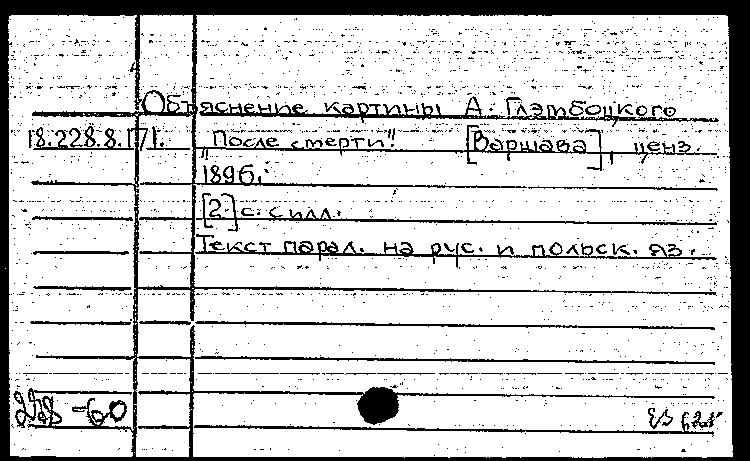 Объяснение картины А. Глэмбоцкого
18.228.8.[7]. „После смерти". [Варшава], ценз.
1896.
[2] с. с илл.
Текст парал. на рус. и польск. яз.
228-60